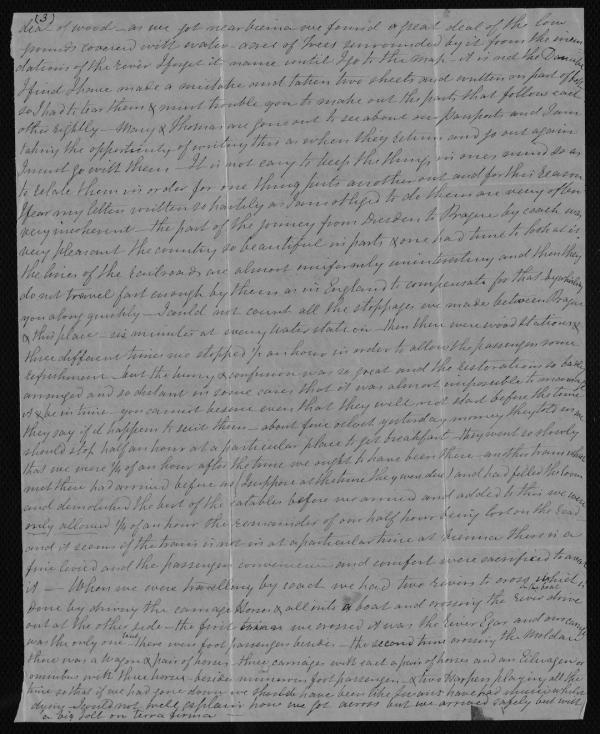 (3)
deal of wood – as we got near Vienna we found a great deal of the low
grounds covered with water – and of trees surrounded by it from the inun
dations of the river I forget its name until I go to the map – it is not the Danube
I find I have made a mistake and taken two sheets and written on part of both
so I had to tear them & must trouble you to make out the parts that follow each
other rightly – Mary & Thomas are gone out to see about our Passports and I am
taking the opportunity of writing this as when they return and go out again
I must go with them – It is not easy to keep the things in ones mind so as
to relate them in order for one thing puts another out and for this reason
I fear my letters written so hastily as I am obliged to do them are very often
very incoherent – the part of the journey from Dresden to Prague by coach was
very pleasant the country so beautiful in parts & one had time to look at it
the lines of the railroads are almost uniformly uninteresting and then they
do not travel fast enough by them as in England to compensate for that by whirling
you along quickly – I could not count all the stoppages we made between Prague
& this place – six minutes at every water station – then there were wood stations &
three different times we stopped ½ an hour in order to allow the passengers some
refreshment – but the hurry & confusion was so great and the restorations so badly
arranged and so distant in some cases that it was almost impossible to manage
it & be in time – you cannot be sure even that they will not start before the time
they say if it happens to suit them – about five oclock yesterday morning they told us we
should stop half an hour at a particular place to get breakfast – they went so slowly
that we were ¼ of an hour after the time we ought to have been there – another train
met there had arrived before us (I suppose at the time they were due) and had filled the room
and demolished the best of the eatables before we arrived and added to this we were
only allowed ¼ of an hour the remainder of our half hour being lost on the road
and it seems if the train is not in at a particular time at Vienna there is a
fine levied and the passengers convenience and comfort were sacrificed to
it – When we were travelling by coach we had two rivers to cross which is
done by driving the carriage Horses & all into a boat and crossing the River drive
out at the other side – the first we crossed it was the River Egar and our carriage
was the only one but there were foot passengers besides – the second time crossing the Moldau
there was a Wagon & pair of horses – three carriages with each a pair of horses and an Eilwagen or
omnibus with three horses – besides numerous foot passengers – & two Harpers playing all the
time so that if we had gone down we should have been like the swans have had music whilst
dying – I could not well explain how we got across but we arrived safely but with
a big jolt on terra firma –